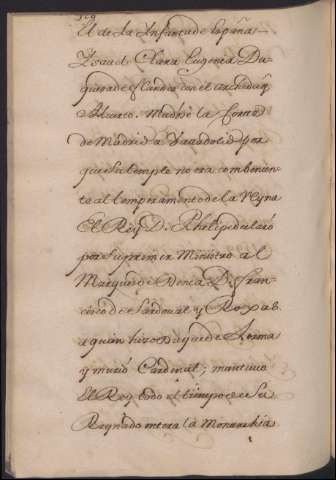 El de la Infanta de España
Isavel Clara Eugenia Du-
quesa de Flandes con el archiduq
Alverto. Mudose la Corte
de Madrid a Valladolid por
que su temple no era combenien
te al temperamento de la Reyna
El Rey D. Phelipe declaró
por su primer Ministro al
Marques de Denia D. Fran-
cisco de Sandoval y Roxas.
a quien hizo Duque de Lerma
y murió Cardenal; mantuvo
El Rey todo el tiempo de su
Reynado entera la Monarchia